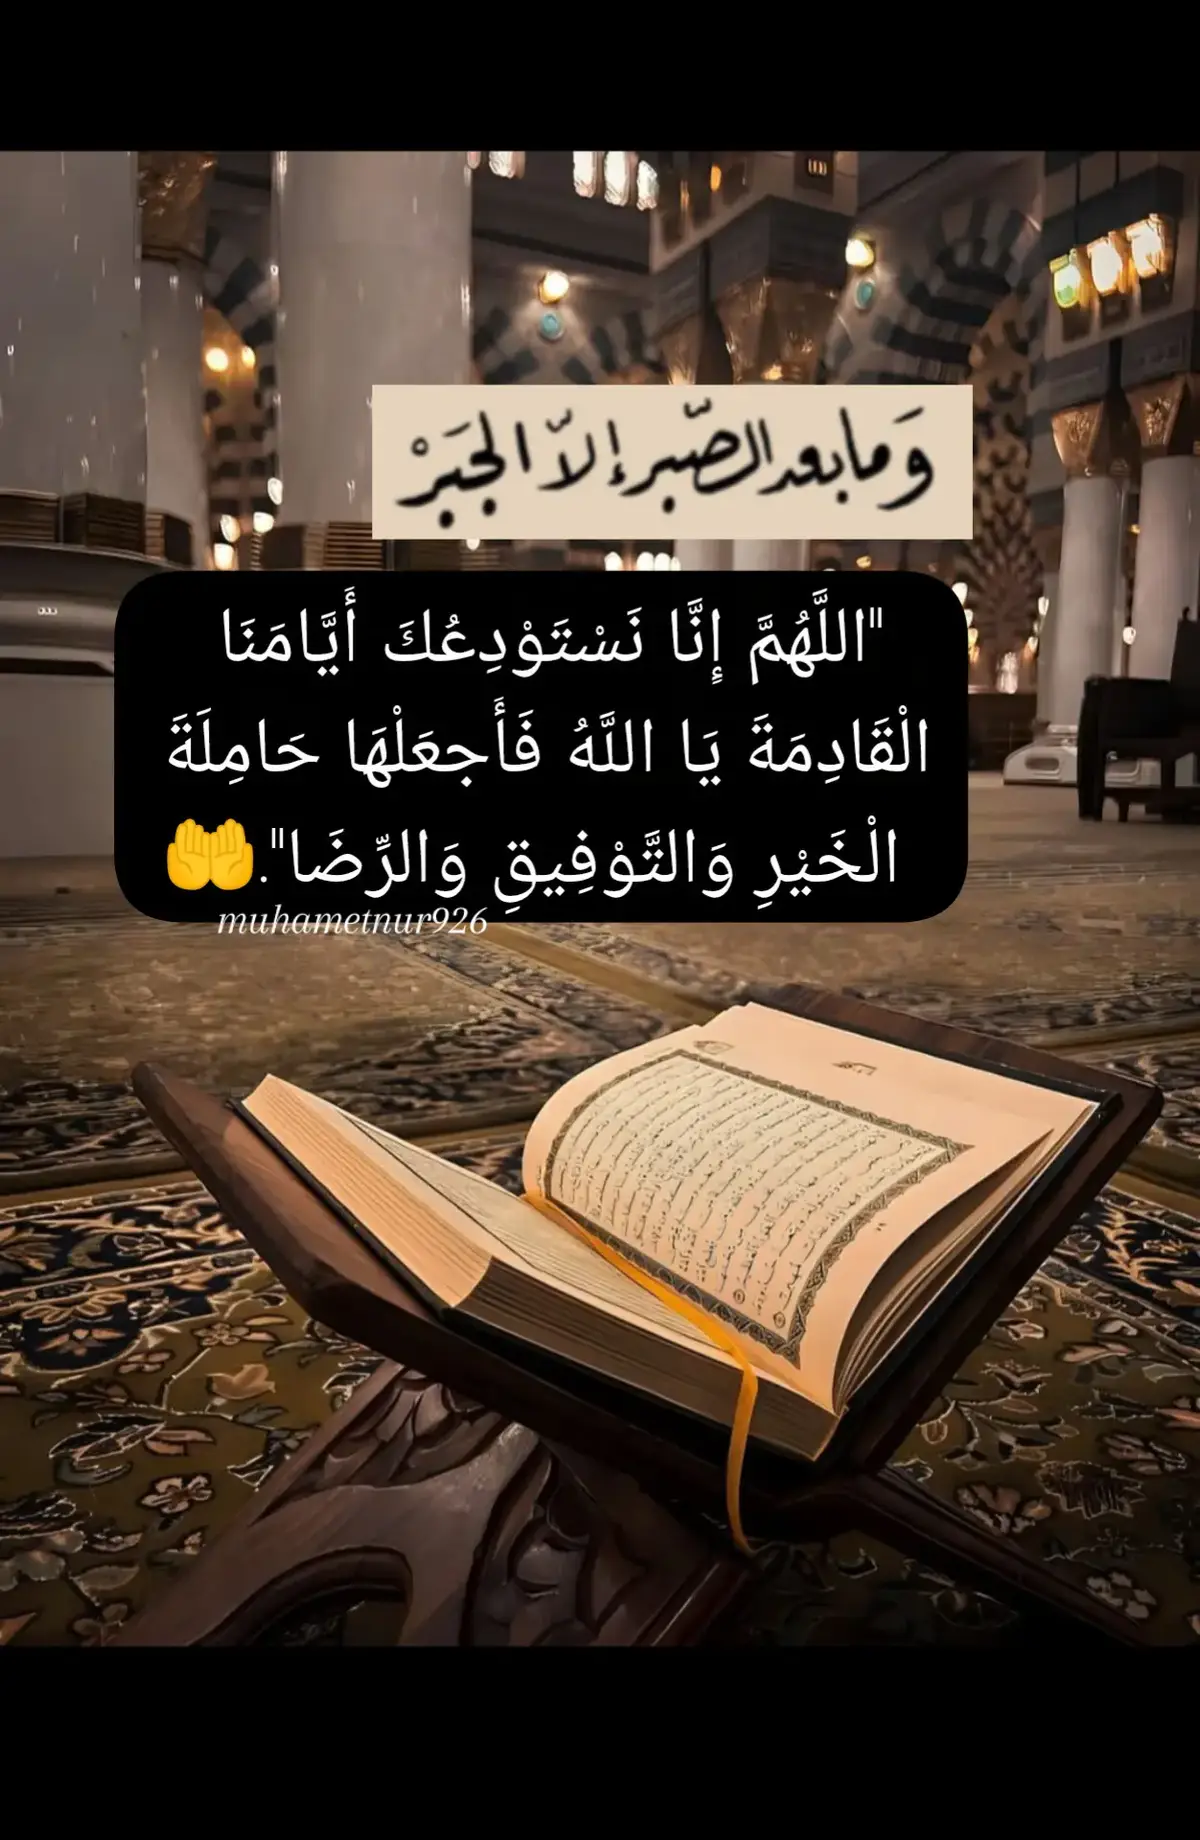 وَمابعد الصّبر إلاّ الجَبَرْ
"اللَّهُمَّ إِنَّا نَسْتَوْدِعُكَ أَيَّامَنَا
الْقَادِمَةَ يَا اللَّهُ فَأَجعَلْهَا حَامِلَةَ
الْخَيْرِ وَالتَّوْفِيقِ وَالرِّضَا".🤲
muhametnur926